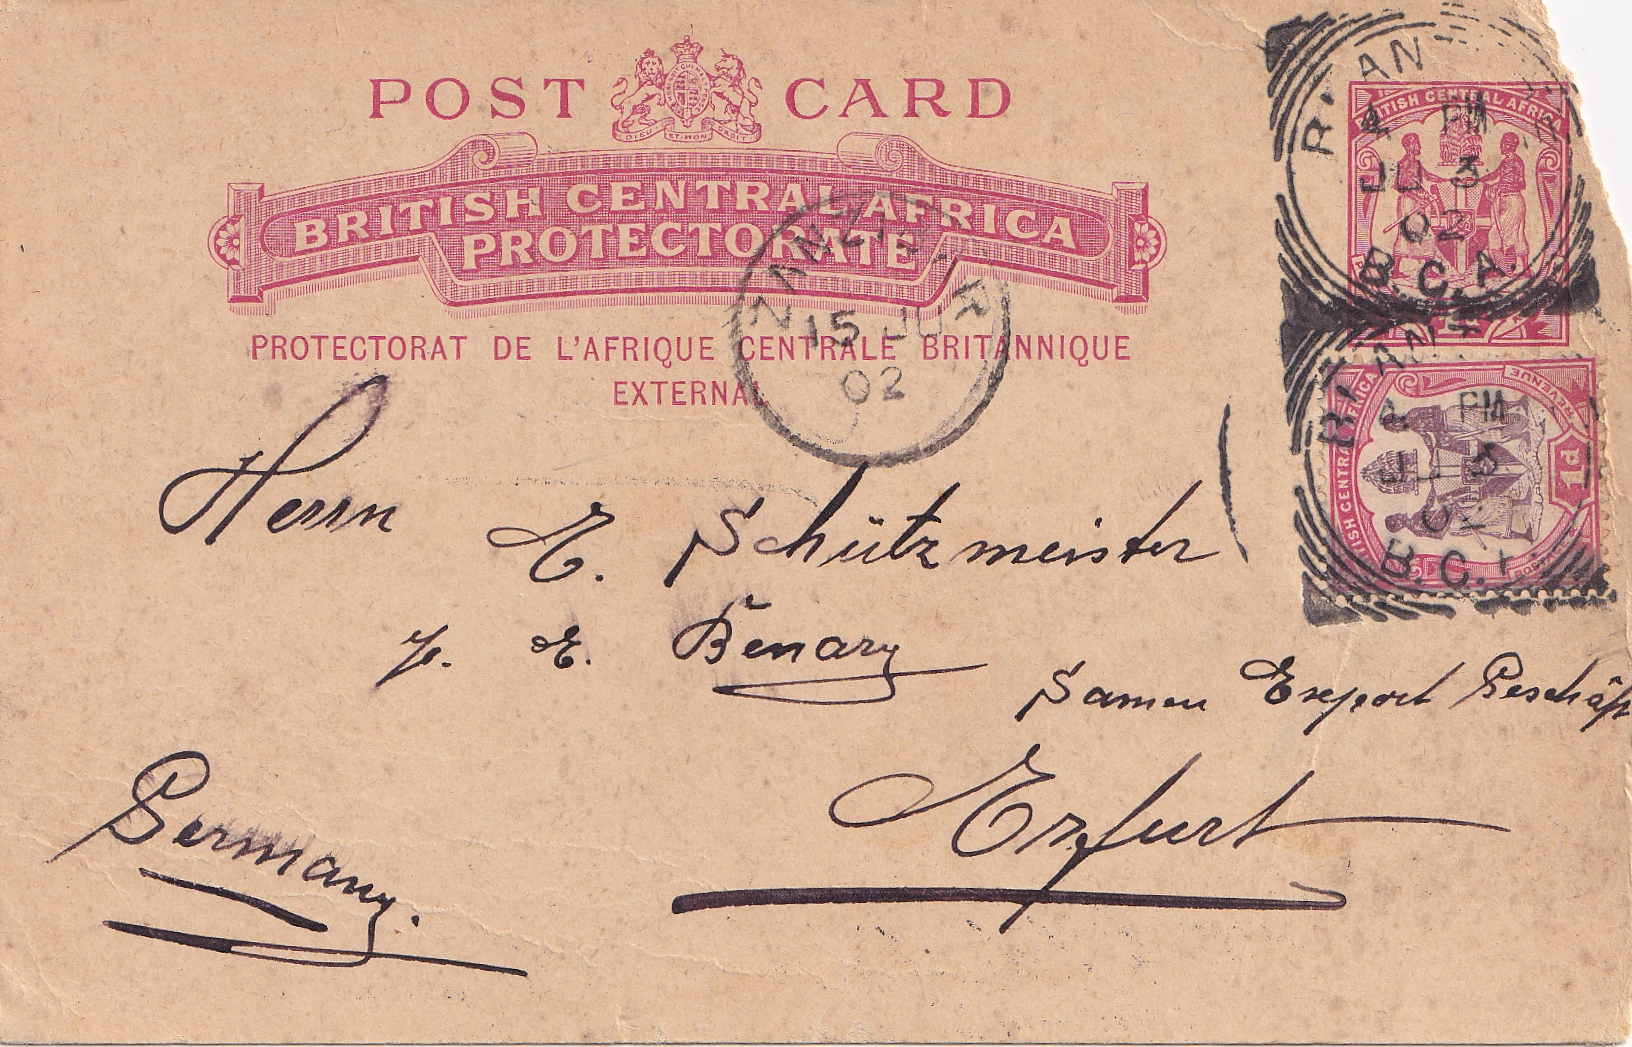 POST CARD
DIEU ET MON DROIT
BRITISH CENTRAL AFRICA
PROTECTORATE
PROTECTORAT DE L'AFRIQUE CENTRALE BRITANNIQUE
EXTERNAL
ZANZIBAR
15 JU
02
BRITISH CENTRAL AFRICA
4 PM
JU 3
02
B.C.A.
REVENUE
1d
PM
B.C.
Herrn
E. Schützmeister
E. Benary
Samen Export Geschäft
Erfurt
Germany.